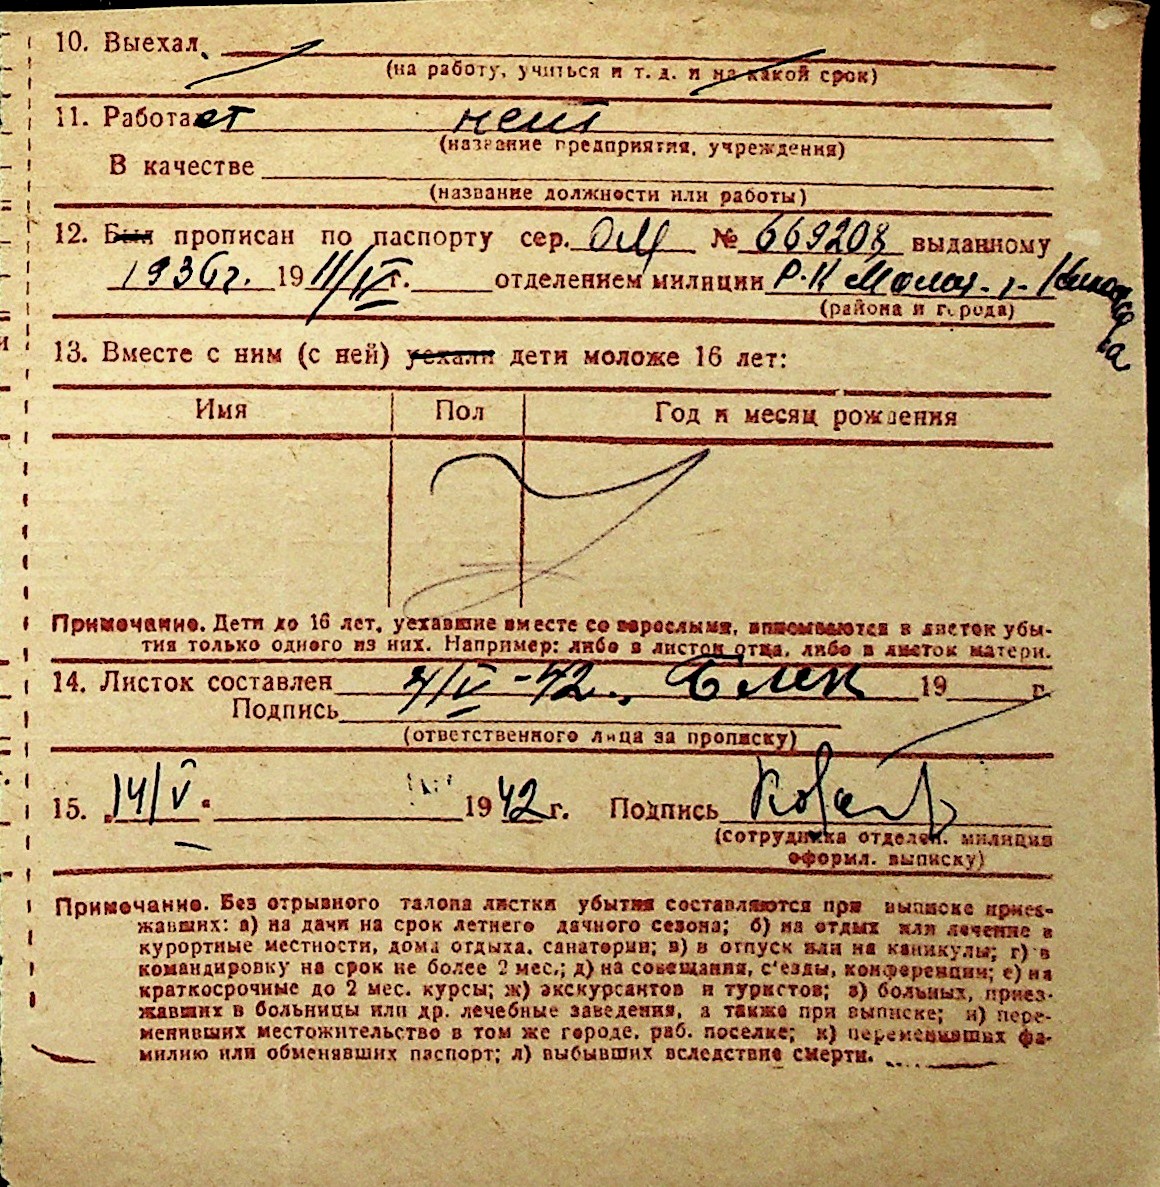 10. Выехал
(на работу, учиться и т. д. и на какой срок)
11. Работает нет
(название предприятия, учреждения)
В качестве
(название должности или работы)
12. Был прописан по паспорту сер. ОМ № 669208 выданному
1936г. 19 11/IV г. отделением милиции Р-К
(района и города)
13. Вместе с ним (с ней) уехали дети моложе 16 лет:
Имя Пол Год и месяц рождения
Примечание. Дети до 16 лет, уехавшие вместе со взрослыми, вписываются в листок убы-
тия только одного из них. Например: либо в листок отца, либо в листок матери.
14. Листок составлен /V-42. 19 г.
Подпись
(ответственного лица за прописку)
15. 14/V. 1942 г. Подпись
(сотрудника отделен. милиции
оформл. выписку)
Примечание. Без отрывного талона листки убытия составляются при выписке приез-
жавших: а) на дачи на срок летнего дачного сезона; б) на отдых или лечение в
курортные местности, дома отдыха, санатории; в) в отпуск или на каникулы; г) в
командировку на срок не более 2 мес.; д) на совещания, с'езды, конференции; е) на
краткосрочные до 2 мес. курсы; ж) экскурсантов и туристов; з) больных, приез-
жавших в больницы или др. лечебные заведения, а также при выписке; и) пере-
менивших местожительство в том же городе, раб. поселке; к) переменивших фа-
милию или обменявших паспорт; л) выбывших вследствие смерти.